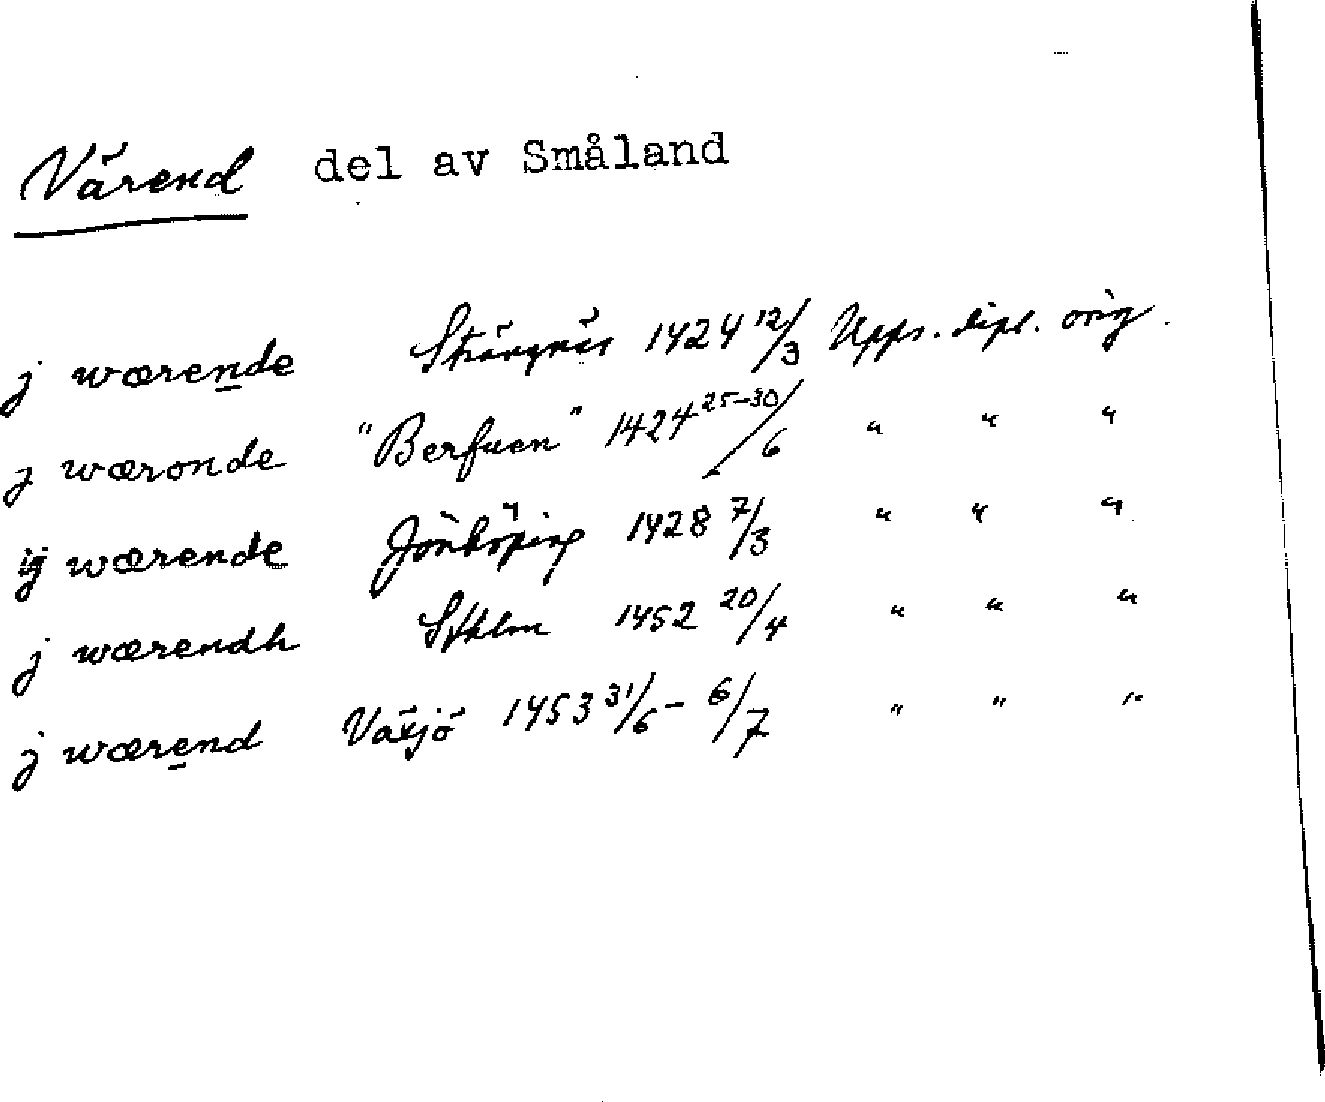 Värend del av Småland
j wærende Strängnäs 1424 12/3 Upps. dipl. orig.
j wæronde "Berfuen" 1424 25-30/6 " " "
ij wærende Jönköping 1428 7/3 " " "
j wærendh Sthlm 1452 20/4 " " "
j wærend Växjö 1453 31/6 - 6/7 " " "